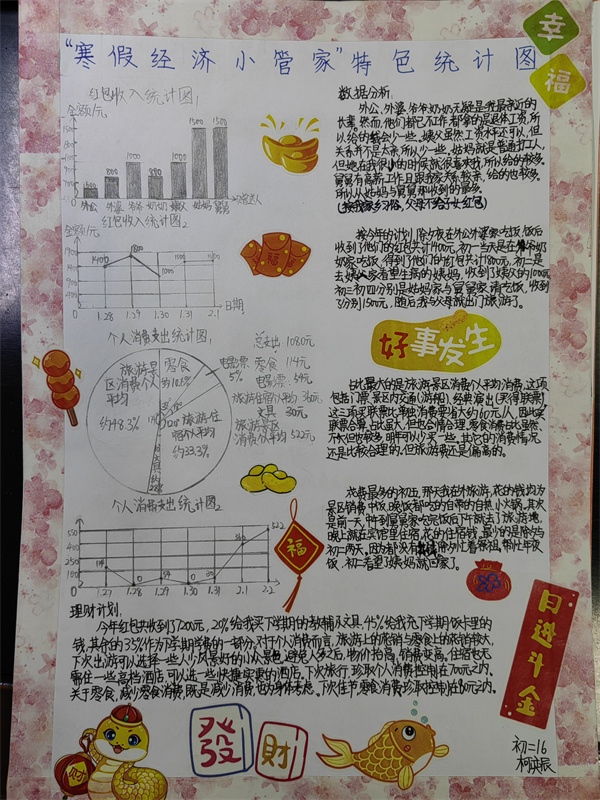 "寒假经济小管家"特色统计图
幸
福
红包收入统计图1
金额/元
1500
1500
1000
800
800
1000
400
外公 外婆 爷爷 奶奶 姨父 姑妈 舅舅
红包收入统计图2
金额/元
1400
1800
1000
1500
1.28 1.59 1.30 1.31 2.1
日期
个人消费支出统计图1
总支出:1080元
旅游景区消费个人平均
约48.3%
零食
约10.5%
电影票
5%
旅游住宿个人平均
约33.3%
零食 114元
电影票 54元
旅游住宿个人平均 360元
文具 30元
旅游景区消费个人平均 522元
个人消费支出统计图2
550
400
250
100
114
0
54
0
30
360
522
1.27 1.28 1.29 1.30 1.31 2.1 2.2
数据分析:
外公、外婆、爷爷奶奶无疑是我最亲近的
长辈。然而,他们都已不工作,都拿的是退休工资,所
以给的都会少一些。姨父虽然工资水平还可以,但
夫妻并不是太亲,所以少一些。姑妈就是普通打工人,
但她在我很小的时候就很喜欢我,所以给的较多。
舅舅有高薪工作,且跟我家关系较亲,给的也较多。
所以从姑妈与舅舅那收到的最多。
(按我家乡习俗,父母不给子女红包)
按今年的计划,除夕夜在外公外婆家吃饭,饭后
收到了他们的红包共计1400元,初一当天是在爷爷奶
奶家吃饭,得到了他们的红包共计1800元,初二是
去姨父家看望生病的姨妈,收到了姨父的1000元
初三初四分别是姑妈家与舅舅家请吃饭,收到
了分别1500元,随后我与父母就出了旅游了。
好事发生
占比最大的是旅游景区消费个人平均消费,这项
包括门票、景区内交通(游船)、经典演出(买得联票)
这三项买联票比单独消费要省大约60元/人,因此买
联票合算,占比虽大,但也合情合理。零食消费占比虽然
不大但也较多,明年可以少买一些。其它的消费情况
还是比较合理的。但旅游消费还是偏高的。
花费最多的初五,那天我在外旅游,花的钱均为
景区销费。中饭、晚饭都吃的自带的自热小火锅。其次
是前一天,中午到舅舅家吃完饭后下午就去了旅游地,
晚上就在宾馆里住宿,花的住宿钱。最少的是除夕与
初二两天。因为都没有
饭,初二看望了姨妈就回家了。
福
理财计划:
今年红包共收到了7200元,20%给我买下学期的教辅及文具,45%给我充下学期饭卡里的
钱,其余的35%作为下学期学费的一部分。对于个人消费而言,旅游上的花销与零食上的花销较大,
下次出游可以选择一些人少风景好的小众景色,避免人多之后,物价抬高,销费变高。住宿也无
需住一些高档酒店,可以选一些快捷实惠的酒店。下次旅行,珍取个人消费控制在700元之内。
关于零食,减少零食消费,既是减少消费,也为身体考虑。下次住节,零食消费珍取控制在80元之内。
日进斗金
财
發
財
初二16
柯奕辰